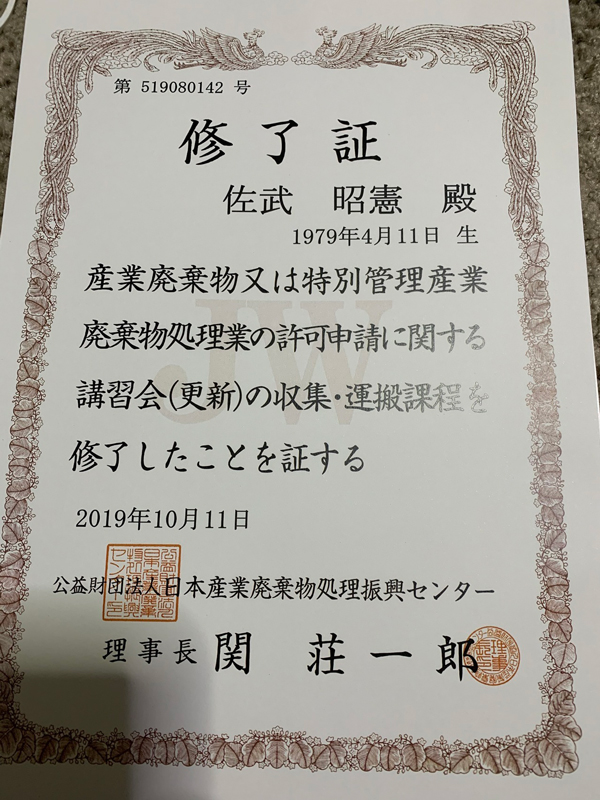 第 519080142 号
修了証
佐武 昭憲 殿
1979年4月11日 生
産業廃棄物又は特別管理産業
廃棄物処理業の許可申請に関する
講習会(更新)の収集・運搬課程を
修了したことを証する
JW
2019年10月11日
公益財団法人日本産業廃棄物処理振興センター
理事長 関 荘一郎